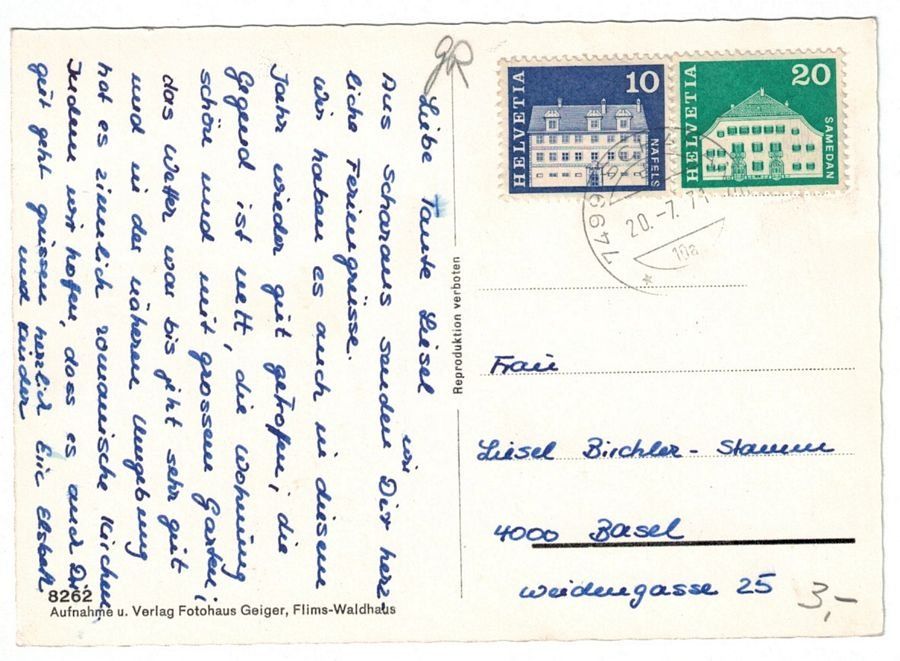 Liebe Tante Liesel
Aus Scharans senden wir Dir herz-
liche Feriengrüsse.
Wir haben es auch in diesem
Jahr wieder gut getroffen; die
Gegend ist nett, die Wohnung
schön und mit grossem Garten;
das Wetter war bis jetzt sehr gut
und in der näheren Umgebung
hat es ziemlich romanische Kirchen,
Indem wir hoffen, dass es auch Dir
gut geht grüssen herzlich Eric Elsbeth
und Kinder
8262
Aufnahme u. Verlag Fotohaus Geiger, Flims-Waldhaus
Reproduktion verboten
GR
HELVETIA 10 NÄFELS
HELVETIA 20 SAMEDAN
7499
20.-7.71
Frau
Liesel Birchler-Stamm
4000 Basel
Weidengasse 25
3,-